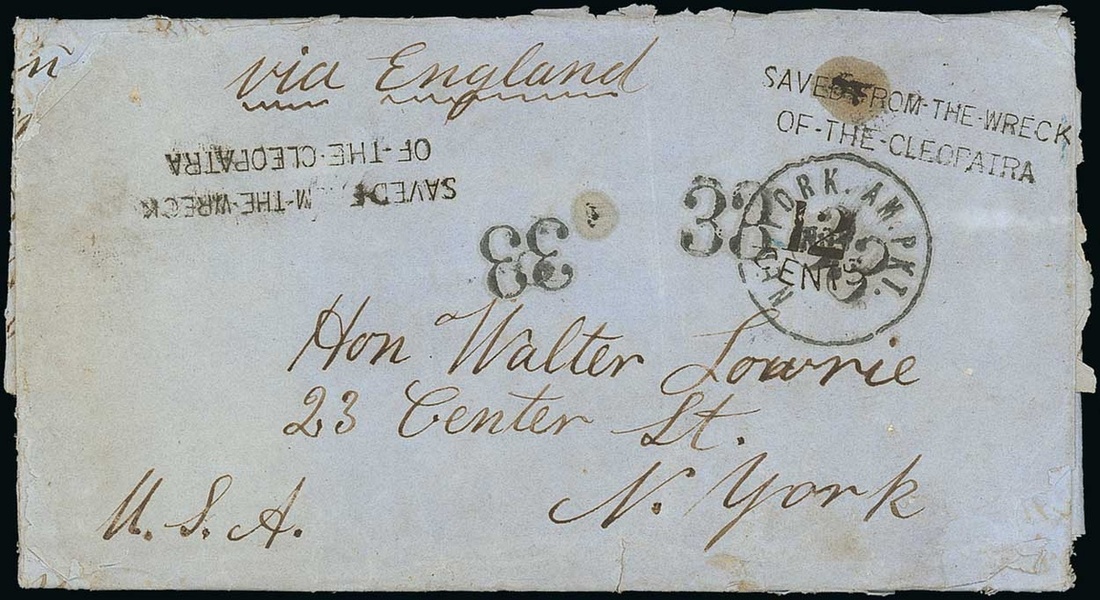 via England
SAVED-FROM-THE-WRECK
OF-THE-CLEOPATRA
SAVED M-THE-WRECK
OF-THE-CLEOPATRA
33
33
NEW YORK. AM. PKT.
12
CENTS
Hon Walter Lowrie
23 Center St.
N. York
U. S. A.